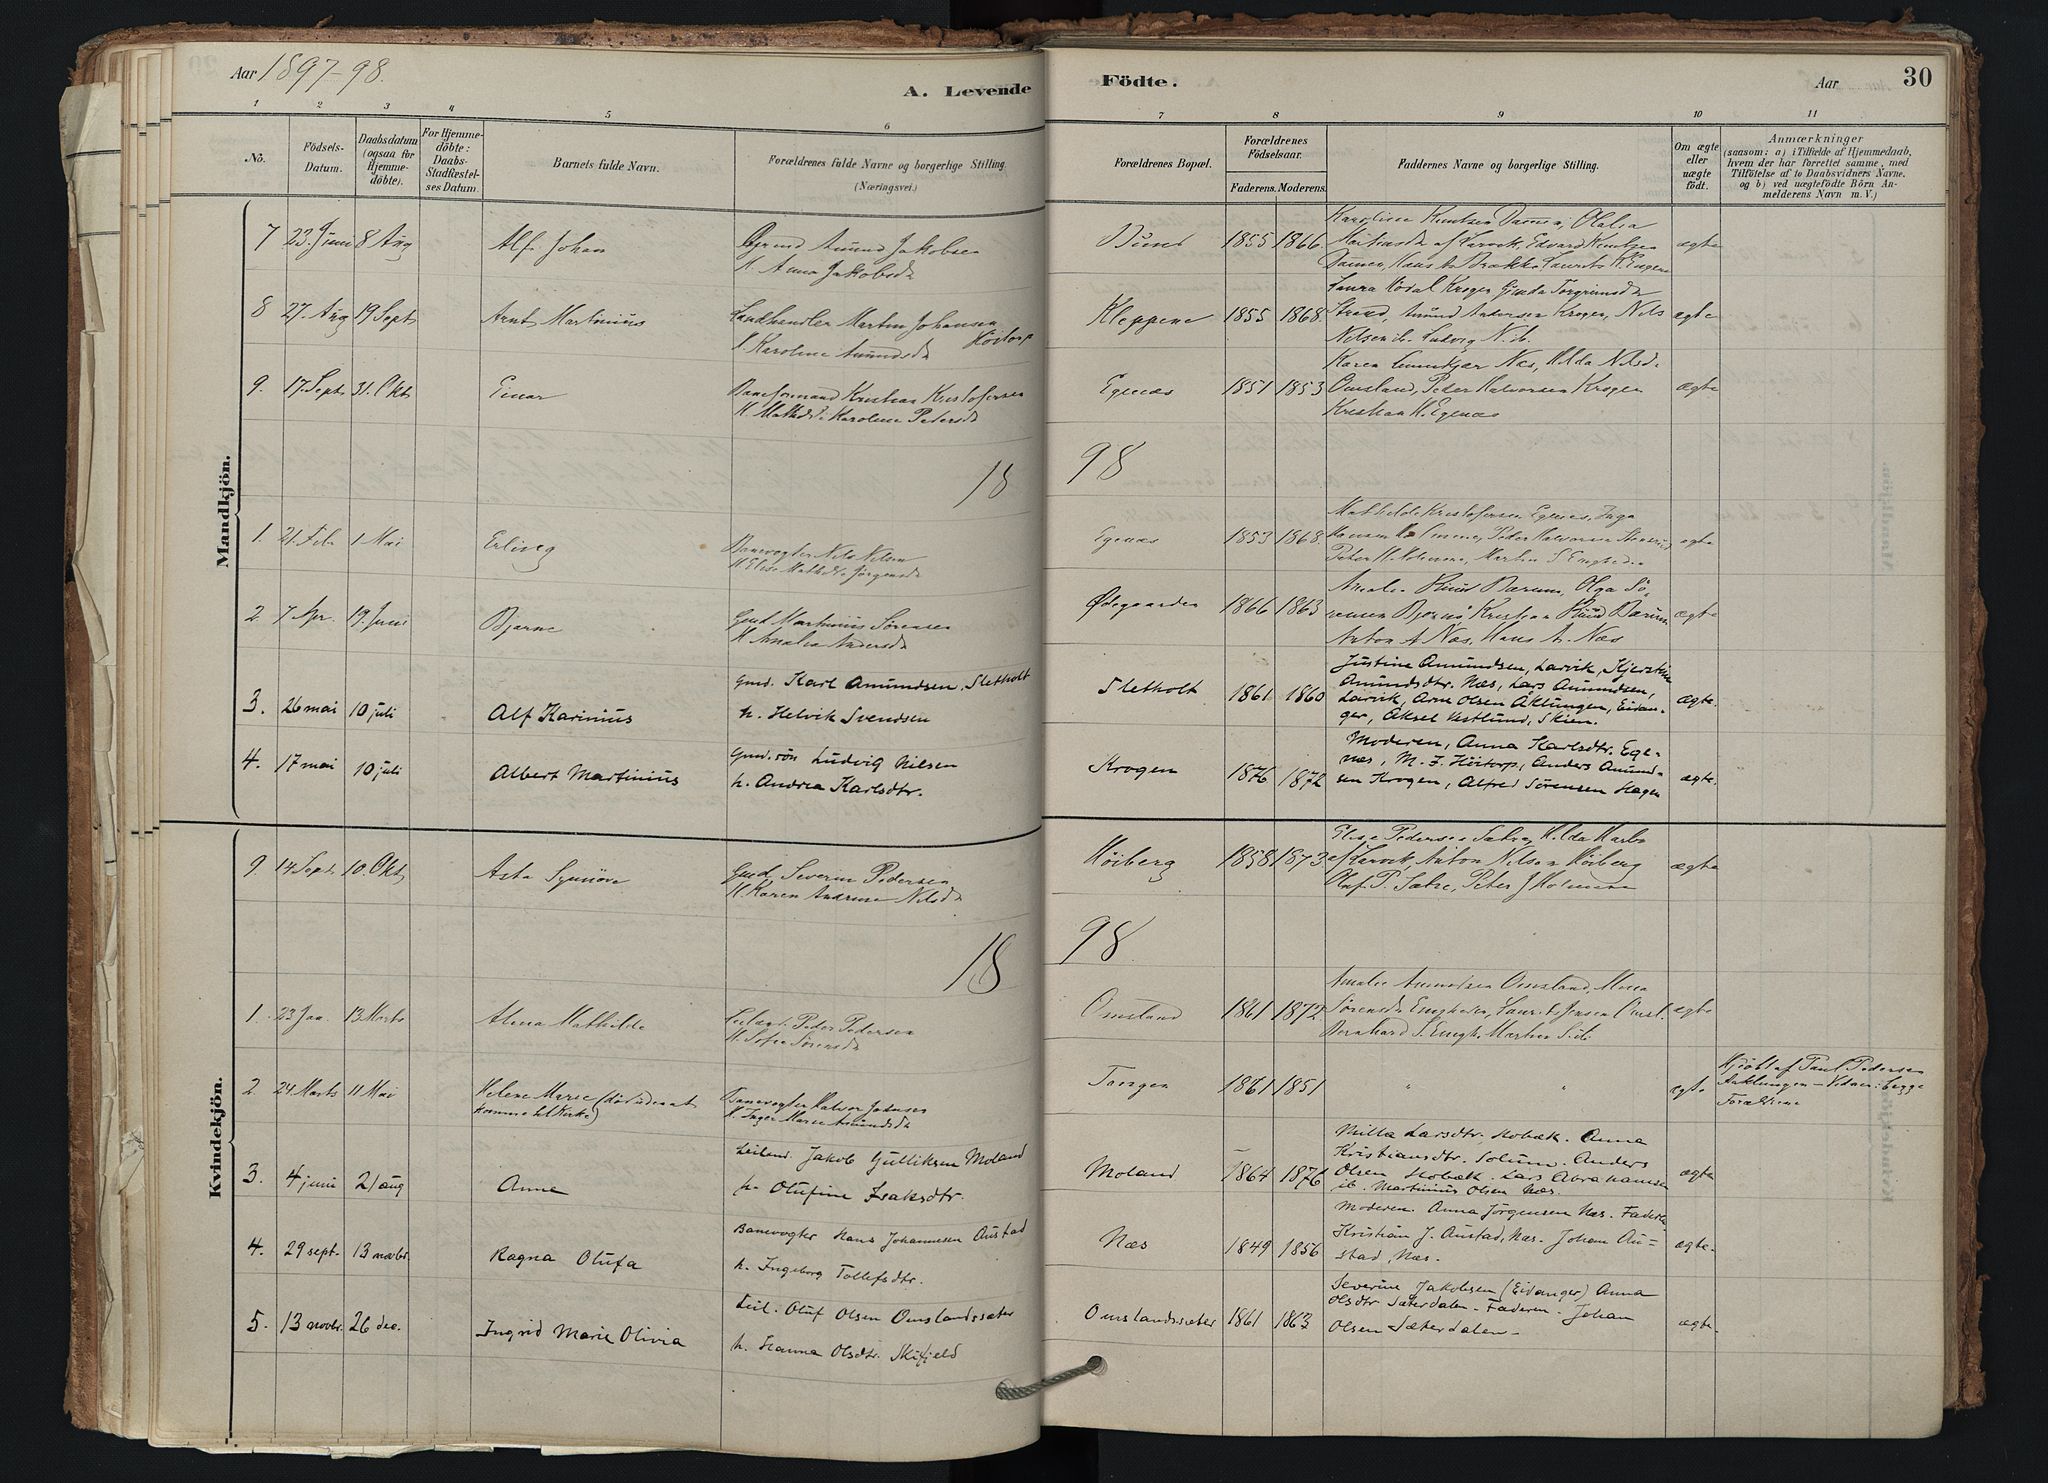 Aar 1897-98.
A. Levende
Födte.
Aar
30
1 2 3 4 5 6 7 8 9 10 11
No.
Födsels-Datum.
Daabsdatum (ogsaa for Hjemmedöbte).
For Hjemmedöbte: Daabs-Stadfæstelses Datum.
Barnets fulde Navn.
Forældrenes fulde Navne og borgerlige Stilling. (Næringsvei.)
Forældrenes Bopæl.
Forældrenes Födselsaar.
Faderens. Moderens.
Faddernes Navne og borgerlige Stilling.
Om ægte eller uægte födt.
Anmærkninger
(saasom: a) i Tilfælde af Hjemmedaab, hvem der har forrettet samme, med Tilföielse af to Daabsvidners Navne. og b) ved uægtefödte Börn Anmelderens Navn m. V.)
Mandkjön.
7 23 Juni 8 Aug Alf Johan
Amund Jakobsen
H. Anna Jakobsd
1855 1866
Karoline Knutsen Damen, Olalia
af Larvik, Edvard Knutsen
Damen, Hans A. Brække Laurits
ægte
8 27. Aug 19 Sept Arnt Martinius
Landhandler Martin Johansen Höitorp
H. Karoline Amundsd
Kleppene 1855 1868
Laura Krogen
Amund Andersen Krogen, Nils
Nilsen ib. Ludvig N. ib.
ægte
9. 17. Sept 31. Okt Einar
Baneformand Kristian Kristofersen
H. Mathilde Karoline Pedersd
Egenæs 1851 1853
Karen Næs, Hilda Nilsd.
Omsland, Peder Halvorsen Krogen
Kristian K. Egenæs
ægte
18 98
1. 21 Feb 1 Mai Erling
Banevogter Nils Nilsen
H. Elise Mathilde Jörgensd
Egenæs 1853 1868
Mathilde Kristofersen Egenes, Inga
Hansen Peder Halvorsen
ægte
2 7 Apr. 19. Juni Bjarne
Gmd Martinius Sörensen
H. Amalia Andersd
Ødegaarden 1866 1863
Olga Sö-
rensen Bjørnö Kristian
Anton A Næs, Hans A. Næs
ægte
3. 26 mai 10 juli Alf Karinius
Gmd. Karl Amundsen, Sletholt
h. Helvik Svendsen
Sletholt 1861 1860
Justine Amundsen, Larvik, Kjerstine
Amundsdtr. Næs, Lars Amundsen,
Larvik, Arne Olsen Åklungen, Eidan-
ger, Aksel Vestlund, Skien.
ægte.
4. 17 mai 10 juli Albert Martinius
Gmd. sön Ludvig Nilsen
h. Andrea Karlsdtr.
Krogen 1876 1872
Moderen, Anna Karlsdtr. Ege-
næs, M. J. Höitorp, Anders Amund-
sen Krogen, Alfred Sörensen Hagen
ægte.
Kvindekjön.
9 14 Sept 10. Okt Asta Synnöve
Gmd. Severin Pedersen
H. Karen Andrine Nilsd
Höiberg 1858 1873
Elise Pedersen
af Larvik, Anton Nilsen Höiberg
Olaf P. Sætre, Peter J Holmen
ægte
18 98
1. 23 Jan. 13 Marts Alma Mathilde
Leilænd. Peder Pedersen
H. Sofie Sörensd
Omsland 1861 1872
Amalie Amundsen Omsland,
Sörensd Laurits Jensen Omsl.
ægte
2 24 Marts 11 Mai Helene Marie
Banevogter Halvor
H. Inger Marie Amundsd
Tangen 1861 1851
" "
ægte
Hjdöbt af Paul Pedersen
Aaklungen – Vidner: begge
Forældrene
3. 4 juni 21 aug Anne
Leilend. Jakob Gulliksen Moland
h. Olufine Isaksdtr.
Moland 1864 1876
Milla Larsdtr. Hobæk. Anna
Kristiansdtr. Solum. Anders
Olsen Hobæk. Lars Abrahamsen
ib. Martinius Olsen Næs.
ægte
4. 29 sept. 13 novbr. Ragna Olufa
Banevogter Hans Johannesen Austad
h. Ingeborg Tollefsdtr.
Næs 1849 1856
Moderen. Anna Jörgensen Næs. Faderen
Kristian J. Austad, Næs. Johan Au=
stad, Næs.
ægte.
5. 13 novbr. 26 dec. Ingrid Marie Olivia
Leil. Oluf Olsen Omslandssæter
h. Hanna Olsdtr. Skifjeld
Omslandssæter 1861 1863
Severine Jakobsen (Eidanger) Anna
Olsdtr Sæterdalen – Faderen – Johan
Olsen Sæterdalen –
ægte.